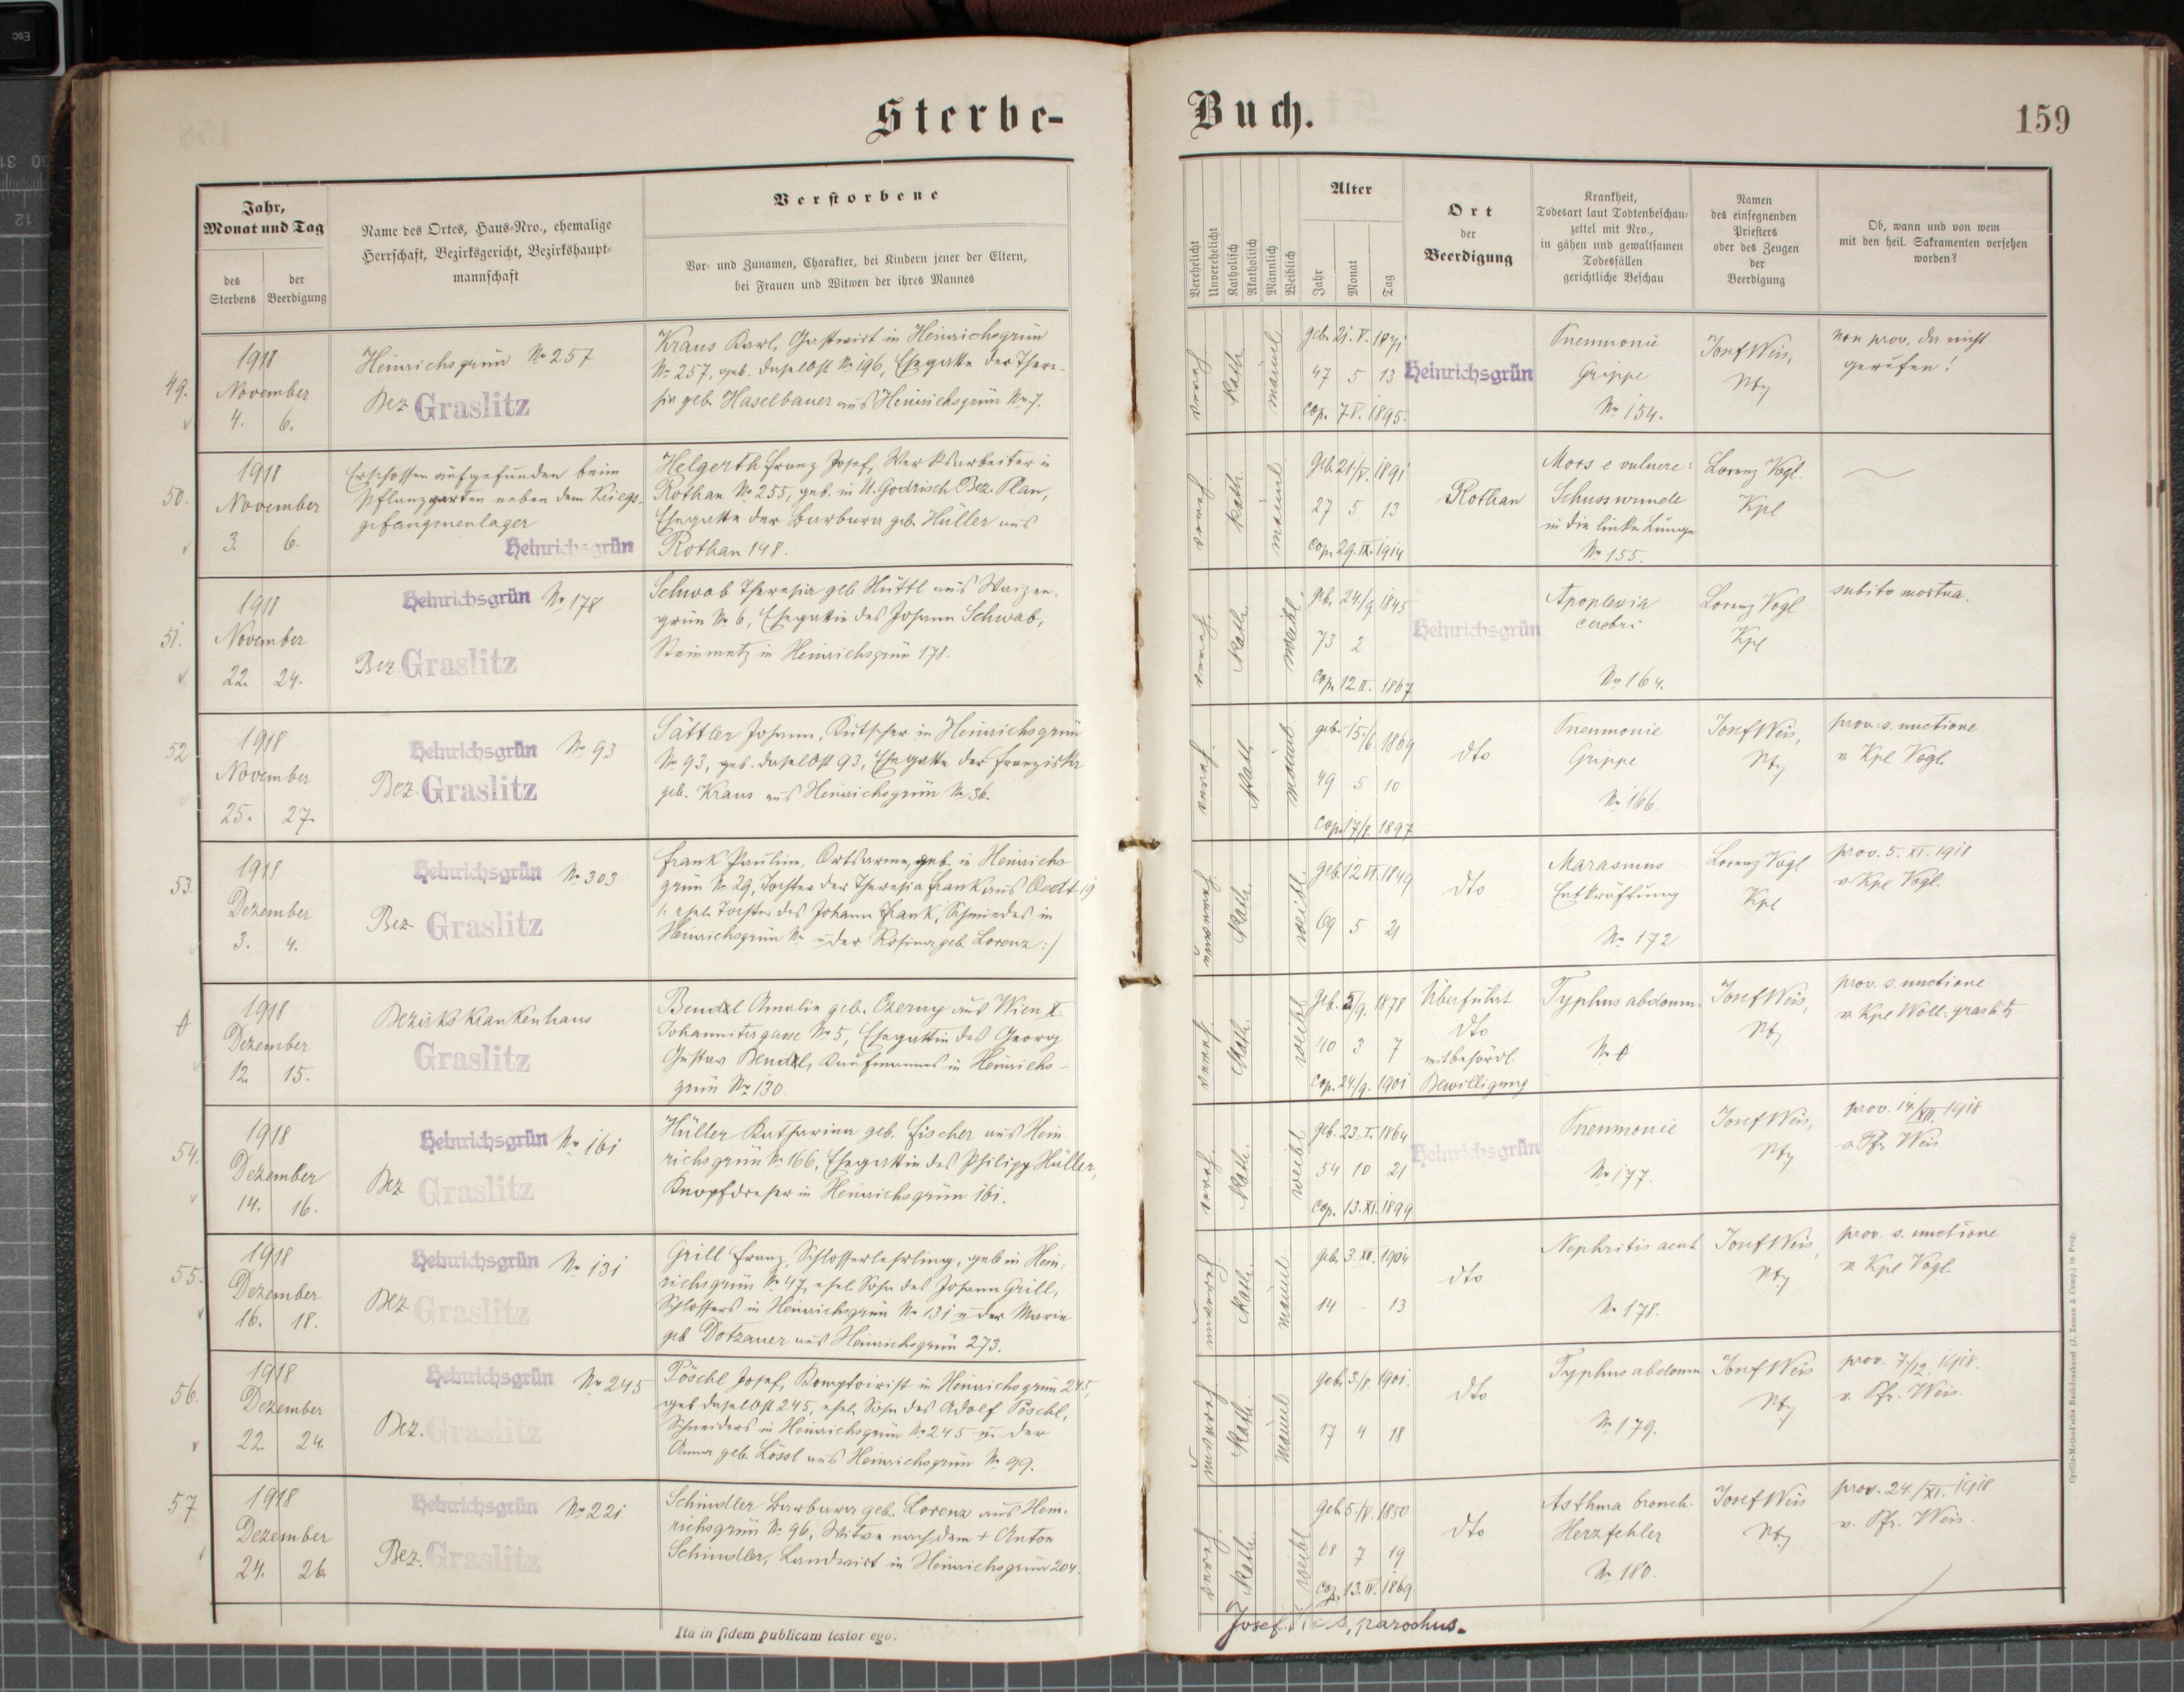 Sterbe-
Buch.
159
Jahr,
Monat und Tag
des
Sterbens
der
Beerdigung
Name des Ortes, Haus-Nro., ehemalige
Herrschaft, Bezirksgericht, Bezirkshaupt-
mannschaft
Verstorbene
Vor- und Zunamen, Charakter, bei Kindern jener der Eltern,
bei Frauen und Witwen der ihres Mannes
Verehelicht
Unverehelicht
Katholisch
Akatholisch
Männlich
Weiblich
Alter
Jahr
Monat
Tag
Ort
der
Beerdigung
Krankheit,
Todesart laut Todtenbeschau-
zettel mit Nro.,
in gähen und gewaltsamen
Todesfällen
gerichtliche Beschau
Namen
des einsegnenden
Priesters
oder des Zeugen
der
Beerdigung
Ob, wann und von wem
mit den heil. Sakramenten versehen
worden?
49.
1918
November
4. 6.
Heinrichsgrün No 257
Bez Graslitz
Kraus Karl, Gastwirt in Heinrichsgrün
No 257, geb. daselbst No 196, Ehegatte der There-
sia geb. Haselbauer aus Heinrichsgrün No 7.
vereh
kath
männl
geb. 21. V. 1871
47 5 13
cop. 7. V. 1895.
Heinrichsgrün
Pneumonie
Grippe
No 154.
Josef Weis,
Pfr
non prov. da nicht
gerufen!
50.
1918
November
3. 6.
Erschossen aufgefunden beim
Pflanzgarten neben dem Kriegs-
gefangenenlager
Heinrichsgrün
Helgerth Franz Josef, Werksarbeiter in
Rothau No 255, geb. in U. Godrisch Bez. Plan,
Ehegatte der Barbara geb. Hüller aus
Rothau 148.
vereh
kath.
männl
geb. 21/V. 1891
27 5 13
cop. 29. IX. 1914
Rothau
Mors e vulnere:
Schusswunde
in die linke Lunge
No 155.
Lorenz Vogl.
Kpl
51.
1918
November
22. 24.
Heinrichsgrün No 178
Bez. Graslitz
Schwab Theresia geb. Hüttl aus Waizen-
grün No 6, Ehegattin des Johann Schwab,
Steinmetz in Heinrichsgrün 178.
vereh.
kath.
weibl.
geb. 24/9 1845
73 2
cop. 12. II. 1867
Heinrichsgrün
Apoplexia
cerebri
No 164.
Lorenz Vogl
Kpl
subito mortua.
52
1918
November
25. 27.
Heinrichsgrün No 93
Bez. Graslitz
Sättler Johann, Kutscher in Heinrichsgrün
No 93, geb. daselbst 93, Ehegatte der Franziska
geb. Kraus aus Heinrichsgrün No 36.
vereh.
kath
männl
geb. 15/6. 1869
49 5 10
cop. 17/8. 1897
dto
Pneumonie
Grippe
No 166.
Josef Weis,
Pfr
prov. s. unctione
v. Kpl Vogl.
53.
1918
Dezember
3. 4.
Heinrichsgrün No 303
Bez Graslitz
Frank Paulina, Ortsarme, geb. in Heinrichs-
grün No 29, Tochter der Theresia Frank aus Oedt 19
/: ehel. Tochter des Johann Frank, Schmiedes in
Heinrichsgrün No u der Rosina geb. Lorenz :/
unvereh
kath.
weibl.
geb. 12. VI. 1849
69 5 21
dto
Marasmus
Entkräftung
No 172
Lorenz Vogl
Kpl
prov. 5. XI. 1918
v. Kpl Vogl.
1918
Dezember
12. 15.
Bezirkskrankenhaus
Graslitz
Bendel Amalie geb. Czerny aus Wien X.
Johannitergasse No 5, Ehegattin des Georg
Gustav Bendel, Kaufmannes in Heinrichs-
grün No 130.
vereh
kath.
weibl
geb. 5/9. 1878
40 3 7
cop. 24/9. 1901
Überführt
dto
mit behördl.
Bewilligung
Typhus abdomin.
Josef Weis,
Pfr
prov. s. unctione
v. Kpl Woll. Graslitz
54.
1918
Dezember
14. 16.
Heinrichsgrün No 161
Bez Graslitz
Hüller Katharina geb. Fischer aus Hein-
richsgrün No 166, Ehegattin des Philipp Hüller,
Knopfdreher in Heinrichsgrün 161.
vereh.
kath.
weibl
geb. 23. I. 1864
54 10 21
cop. 13. XI. 1899
Heinrichsgrün
Pneumonie
No 177.
Josef Weis,
Pfr
prov. 14/XII 1918
v. Pfr. Weis
55.
1918
Dezember
16. 18.
Heinrichsgrün No 131
Bez Graslitz
Grill Franz, Schlosserlehrling, geb in Hein-
richsgrün No 47, ehel. Sohn des Johann Grill,
Schlossers in Heinrichsgrün No 131 u der Maria
geb Dotzauer aus Heinrichsgrün 273.
unvereh
kath.
männl
geb. 3. XII. 1904
14 13
dto
Nephritis acut
No 178.
Josef Weis,
Pfr
prov. s. unctione
v. Kpl Vogl.
56.
1918
Dezember
22. 24.
Heinrichsgrün No 245
Bez. Graslitz
Pöschl Josef, Komptoirist in Heinrichsgrün 245,
geb daselbst 245, ehel. Sohn des Adolf Pöschl,
Schneiders in Heinrichsgrün No 245 u. der
Anna geb. Lössl aus Heinrichsgrün No 99.
unvereh
kath.
männl
geb. 3/8. 1901.
17 4 18
dto
Typhus abdomin
No 179.
Josef Weis
Pfr
prov. 7/12. 1918.
v. Pfr. Weis.
57
1918
Dezember
24. 26.
Heinrichsgrün No 221
Bez. Graslitz
Schindler Barbara geb. Lorenz aus Hein-
richsgrün No 96, Witwe nach dem + Anton
Schindler, Landwirt in Heinrichsgrün 204.
vereh.
kath.
weibl
geb 5./V. 1850
68 7 19
cop. 13. IV. 1869
dto
Asthma bronch.
Herzfehler
No 180.
Josef Weis
Pfr
prov. 24./XI. 1918
v. Pfr. Weis.
Ita in fidem publicam testor ego.
Josef Weis, parochus.